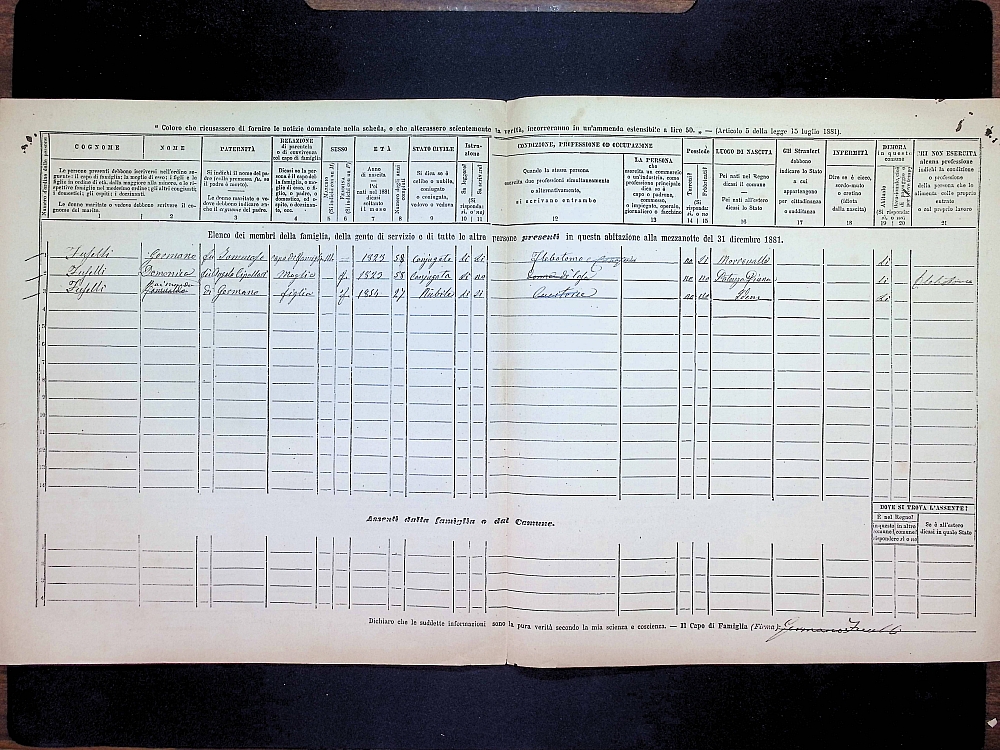 " Coloro che ricusassero di fornire le notizie domandate nella scheda, o che alterassero scientemente la verità, incorreranno in un'ammenda estensibile a lire 50. „ — (Articolo 5 della legge 15 luglio 1881).
8
COGNOME NOME PATERNITÀ RELAZIONE di parentela o di convivenza col capo di famiglia SESSO ETÀ STATO CIVILE Istruzione CONDIZIONE, PROFESSIONE OD OCCUPAZIONE Possiede LUOGO DI NASCITA Gli Stranieri debbono indicare lo Stato a cui appartengono per cittadinanza o sudditanza INFERMITÀ DIMORA in questo comune CHI NON ESERCITA alcuna professione indichi la condizione o professione della persona che lo alimenta colle proprie entrate o col proprio lavoro
Le persone presenti debbono iscriversi nell'ordine seguente: il capo di famiglia; la moglie di esso; i figli e le figlie in ordine di età, dalla maggiore alla minore, e le rispettive famiglie nel medesimo ordine; gli altri congiunti; i domestici; gli ospiti; i dozzinanti.
Le donne maritate o vedove debbono scrivere il cognome del marito.
Si indichi il nome del padre (colla premessa fu, se il padre è morto).
Le donne maritate o vedove debbono indicare anche il cognome del padre.
Anno di nascita — Pei nati nel 1881 dicasi soltanto il mese
Numero degli anni compiuti
Si dica se è celibe o nubile, coniugato o coniugata, vedovo o vedova
Sa leggere? Sa scrivere? (Si risponda: sì, o no)
Quando la stessa persona esercita due professioni simultaneamente o alternativamente, si scrivano entrambe
LA PERSONA che esercita un commercio o un'industria, o come professione principale dica se è capo o padrone, o impiegato, operaio, giornaliero o facchino
Terreni? Fabbricati? (Si risponda: sì, o no)
Pei nati nel Regno dicasi il comune — Pei nati all'estero dicasi lo Stato
Dire se è cieco, sordo-muto o cretino (idiota dalla nascita)
1 2 3 4 5 6 7 8 9 10 11 12 13 14 15 16 17 18 19 20 21
Elenco dei membri della famiglia, della gente di servizio e di tutte le altre persone presenti in questa abitazione alla mezzanotte del 31 dicembre 1881.
1 Fufelli Germano fu Capo di famiglia M. — 1823 58 Conjugato si si Flebotomo no si Morrovalle si
2 Fufelli Domenica fu Angelo Moglie — f. 1823 58 Conjugata si no Donna di Casa no no si Flebotomo
3 Fufelli di Germano figlia — f. 1854 27 Nubile si si no no Idem si
4
5
6
7
8
9
10
11
12
13
14
Assenti dalla famiglia o dal Comune.
DOVE SI TROVA L'ASSENTE?
È nel Regno? Se è all'estero dicasi in quale Stato
in questo comune? in altro comune? rispondere sì o no
1
2
3
4
Dichiaro che le suddette informazioni sono la pura verità secondo la mia scienza e coscienza. — Il Capo di Famiglia (Firma) Germano Fufelli